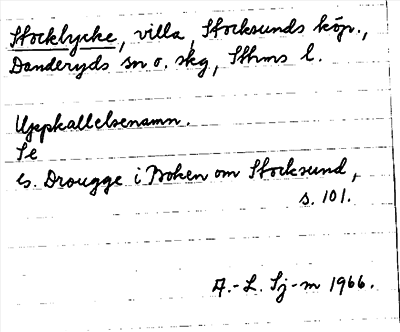 Stocklycke, villa, Stocksunds köp.,
Danderyds sn o. skg, Sthms l.
Uppkallelsenamn.
Se
G. Drougge i Boken om Stocksund,
s. 101.
A.-L. Sj-m 1966.